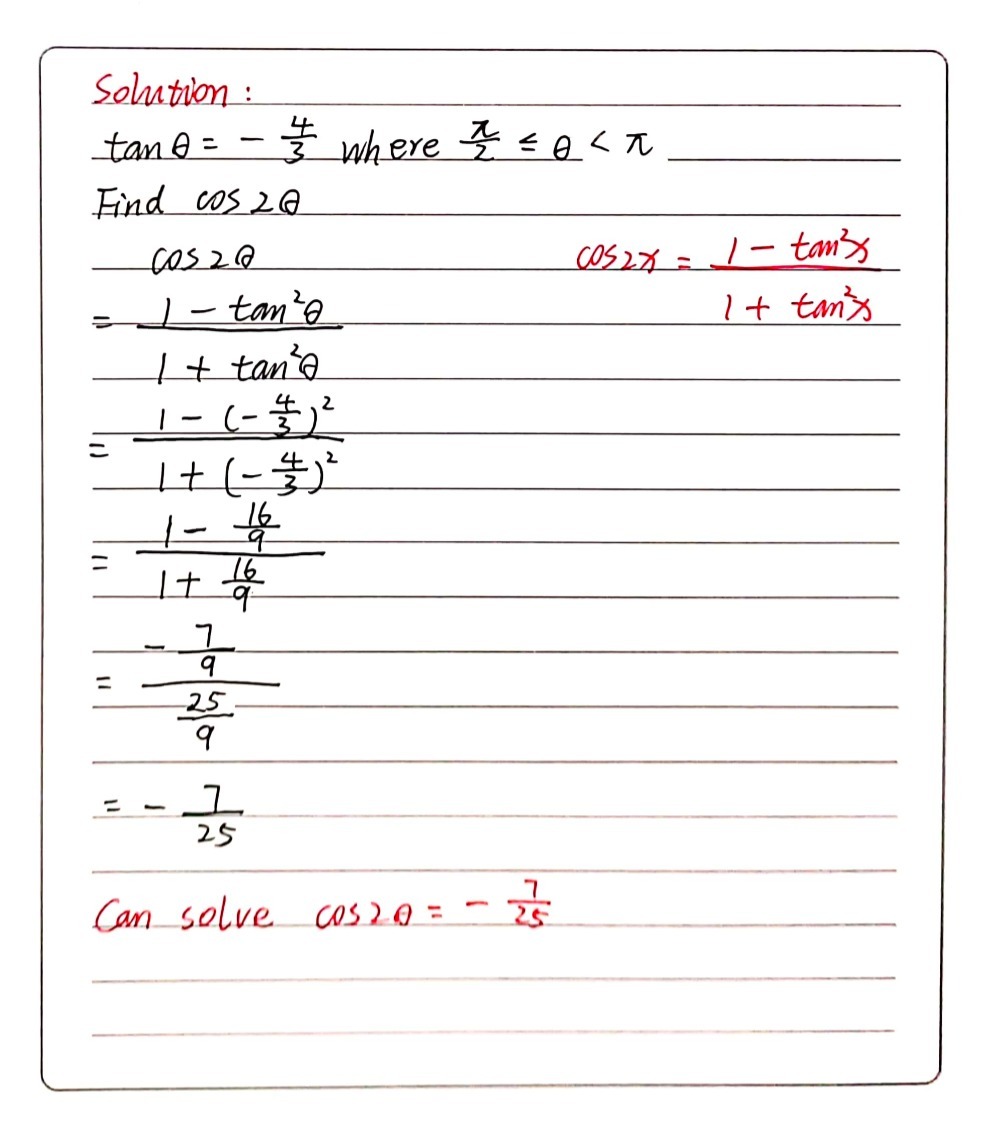 Solution :
tan θ = - 4/3 where π/2 ≤ θ < π
Find cos 2θ
cos 2θ
cos2x = (1 - tan²x)/(1 + tan²x)
= (1 - tan²θ)/(1 + tan²θ)
= (1 - (-4/3)²)/(1 + (-4/3)²)
= (1 - 16/9)/(1 + 16/9)
= (- 7/9)/(25/9)
= - 7/25
Can solve cos2θ = - 7/25